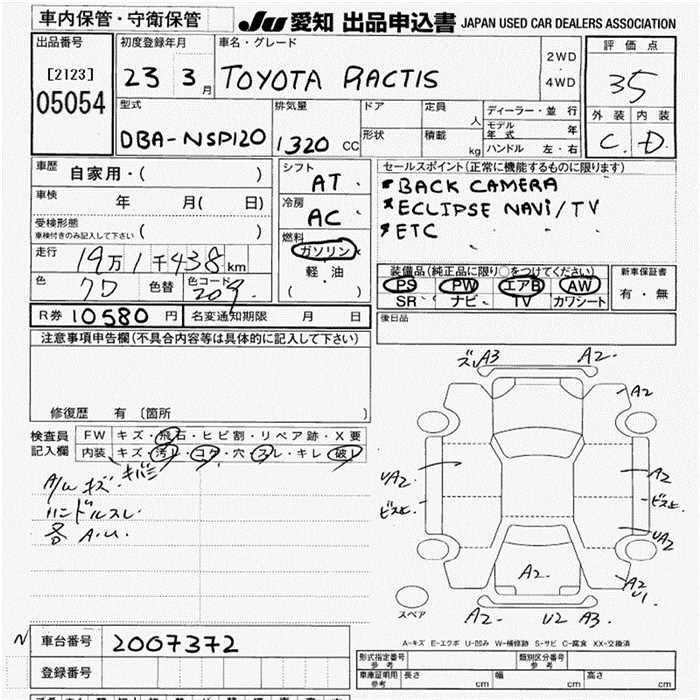 車内保管・守衛保管
JU 愛知 出品申込書 JAPAN USED CAR DEALERS ASSOCIATION
出品番号
[2123]
05054
初度登録年月
23 3月
車名・グレード
TOYOTA RACTIS
2WD
・
4WD
評価点
35
外装 内装
C. D.
型式
DBA-NSP120
排気量
1320 CC
ドア
形状
定員 人
積載 kg
ディーラー・並行
モデル年式 年
ハンドル 左・右
車歴
自家用・( )
車検
年 月( 日)
受検形態
車検付きのみ記入して下さい ( )
走行
19万1千438km
色
色替
色コード
209
シフト
AT
冷房
AC
燃料
ガソリン
・
軽油
( )
セールスポイント(正常に機能するものに限ります)
* BACK CAMERA
* ECLIPSE NAVI/TV
* ETC
装備品(純正品に限り○をつけてください)
PS PW エアB AW
SR ナビ TV カワシート
新車保証書
有・無
R券 10580 円 名変通知期限 月 日
後日品
注意事項申告欄(不具合内容等は具体的に記入して下さい)
修復歴 有 〔箇所 〕
検査員記入欄
FW キズ・飛石・ヒビ割・リペア跡・X要
内装 キズ・汚レ・コゲ・穴・スレ・キレ・破レ
A/W キズ.
ハンドルスレ
各 A.U.
A3 A2.
A2
UA2
ビス止
A2
ビス止
UA2
A2.
A2
U1.
スペア
A2. U2 A3.
A-キズ E-エクボ U-凹み W-補修跡 S-サビ C-腐食 XX-交換済
N 車台番号 2007372
登録番号
形式指定番号 参考
類別区分番号 参考
車庫証明用 参考 長さ cm 幅 cm 高さ cm